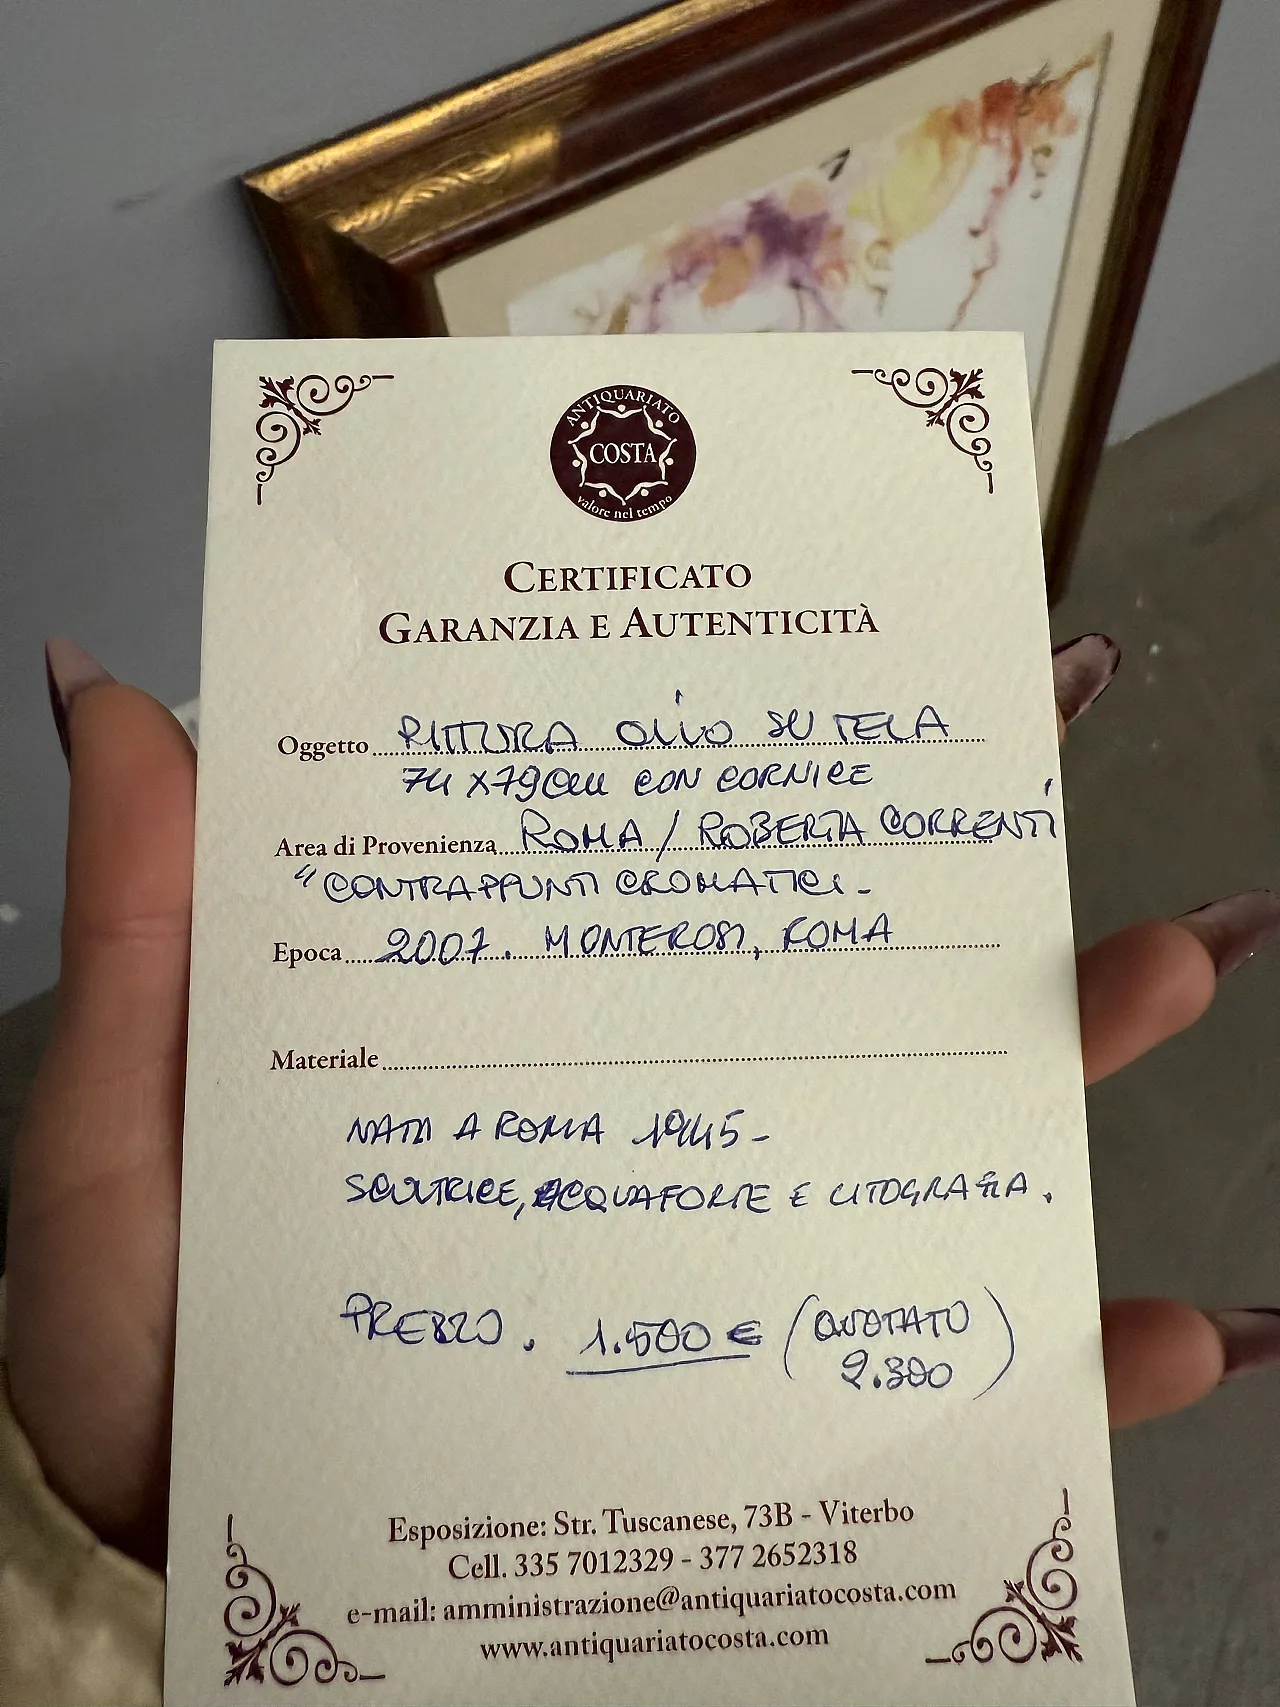 ANTIQUARIATO
COSTA
valore nel tempo
CERTIFICATO
GARANZIA E AUTENTICITÀ
Oggetto PITTURA OLIO SU TELA
74 X 79 cm CON CORNICE
Area di Provenienza ROMA / ROBERTA CORRENTI
"CONTRAPPUNTI CROMATICI -
Epoca 2007. MONTEROSI, ROMA
Materiale
NATA A ROMA 1945 -
SCULTRICE, ACQUAFORTE E LITOGRAFIA.
PREZZO. 1.500 € (QUOTATO
2.300)
Esposizione: Str. Tuscanese, 73B - Viterbo
Cell. 335 7012329 - 377 2652318
e-mail: amministrazione@antiquariatocosta.com
www.antiquariatocosta.com